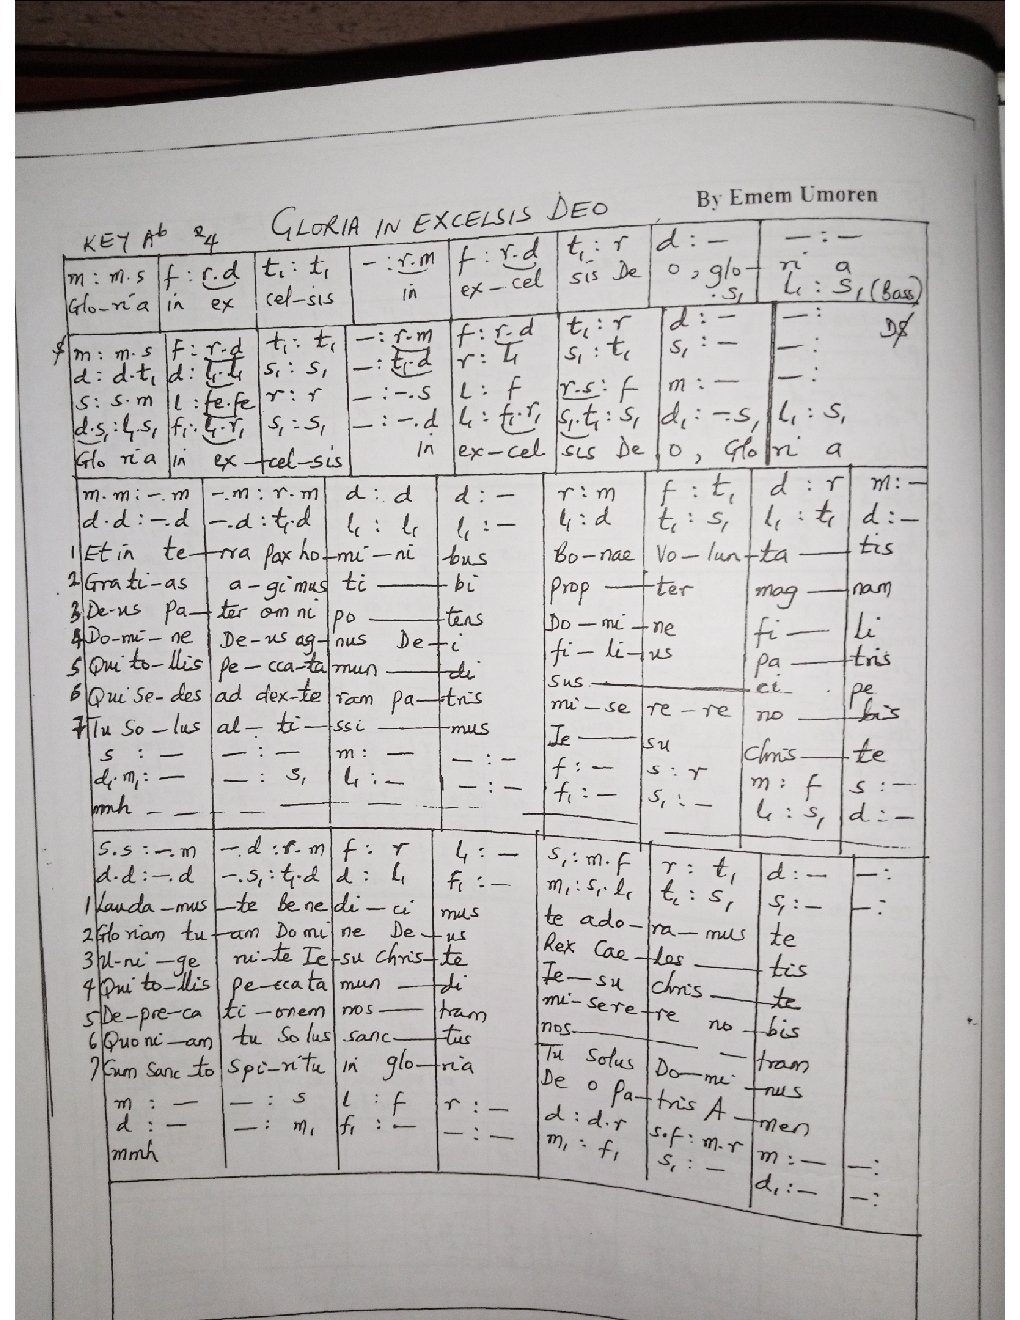 By Emem Umoren
KEY Ab 2/4 GLORIA IN EXCELSIS DEO
m : m.s | f : r.d | t₁ : t₁ | – : r.m | f : r.d | t₁ : r | d : – | – : –
Glo-ri a | in ex | cel-sis | in | ex-cel | sis De | o, glo- | ri a
. s₁ | l₁ : s₁ (Bass)
D$
$ m : m.s | f : r.d | t₁ : t₁ | – : r-m | f : r-d | t₁ : r | d : – | – :
d : d.t₁ | d : l₁.l₁ | s₁ : s₁ | – : t₁.d | r : l₁ | s₁ : t₁ | s₁ : – | – :
s : s.m | l : fe.fe | r : r | – : -.s | l : f | r.s : f | m : – | – :
d.s₁ : l₁.s₁ | f₁ : l₁.r₁ | s₁ : s₁ | – : -.d | l₁ : f₁.r₁ | s₁.t₁ : s₁ | d₁ : -.s₁ | l₁ : s₁
Glo ria | in ex-cel-sis | in | ex-cel | sis De | o, Glo | ri a
m.m : -.m | -.m : r.m | d : d | d : – | r : m | f : t₁ | d : r | m : –
d.d : -.d | -.d : t₁.d | l₁ : l₁ | l₁ : – | l₁ : d | t₁ : s₁ | l₁ : t₁ | d : –
1 Et in te-rra Pax ho-mi-ni bus Bo-nae Vo-lun-ta — tis
2 Grati-as a-gimus ti — bi Prop — ter mag — nam
3 De-us pa-ter omni po — tens Do-mi-ne fi — li
4 Do-mi-ne De-us ag-nus De-i fi-li-us pa — tris
5 Qui to-llis pe-cca-ta mun — di sus — ci- pe
6 Qui se-des ad dex-te ram pa-tris mi-se re-re no — bis
7 Tu So-lus al-ti-ssi — mus Ie — su Chris — te
s : – | – : – | m : – | – : – | f : – | s : r | m : f | s : –
d₁.m₁ : – | – : s₁ | l₁ : – | – : – | f₁ : – | s₁ : – | l₁ : s₁ | d : –
mmh
s.s : -.m | -.d : r-m | f : r | l₁ : – | s₁ : m.f | r : t₁ | d : – | – :
d.d : -.d | -.s₁ : t₁.d | d : l₁ | f₁ : – | m₁ : s₁.l₁ | t₁ : s₁ | s₁ : – | – :
1 Lauda-mus-te Be ne di-ci mus te ado-ra-mus te
2 Gloriam tu-am Domi ne De-us Rex Cae-les — tis
3 U-ni-ge ni-te Ie-su Chris-te Ie-su Chris — te
4 Qui to-llis pe-ccata mun — di mi-sere-re no-bis
5 De-pre-ca ti-onem nos — tram nos — tram
6 Quo ni-am tu Solus sanc — tus Tu Solus Do-mi-nus
7 Cum Sanc to Spi-ritu in glo-ria De o Pa-tris A-men
m : – | – : s | l : f | r : – | d : d.r | s.f : m-r | m : – | – :
d : – | – : m₁ | f₁ : – | – : – | m₁ : f₁ | s₁ : – | d₁ : – | – :
mmh